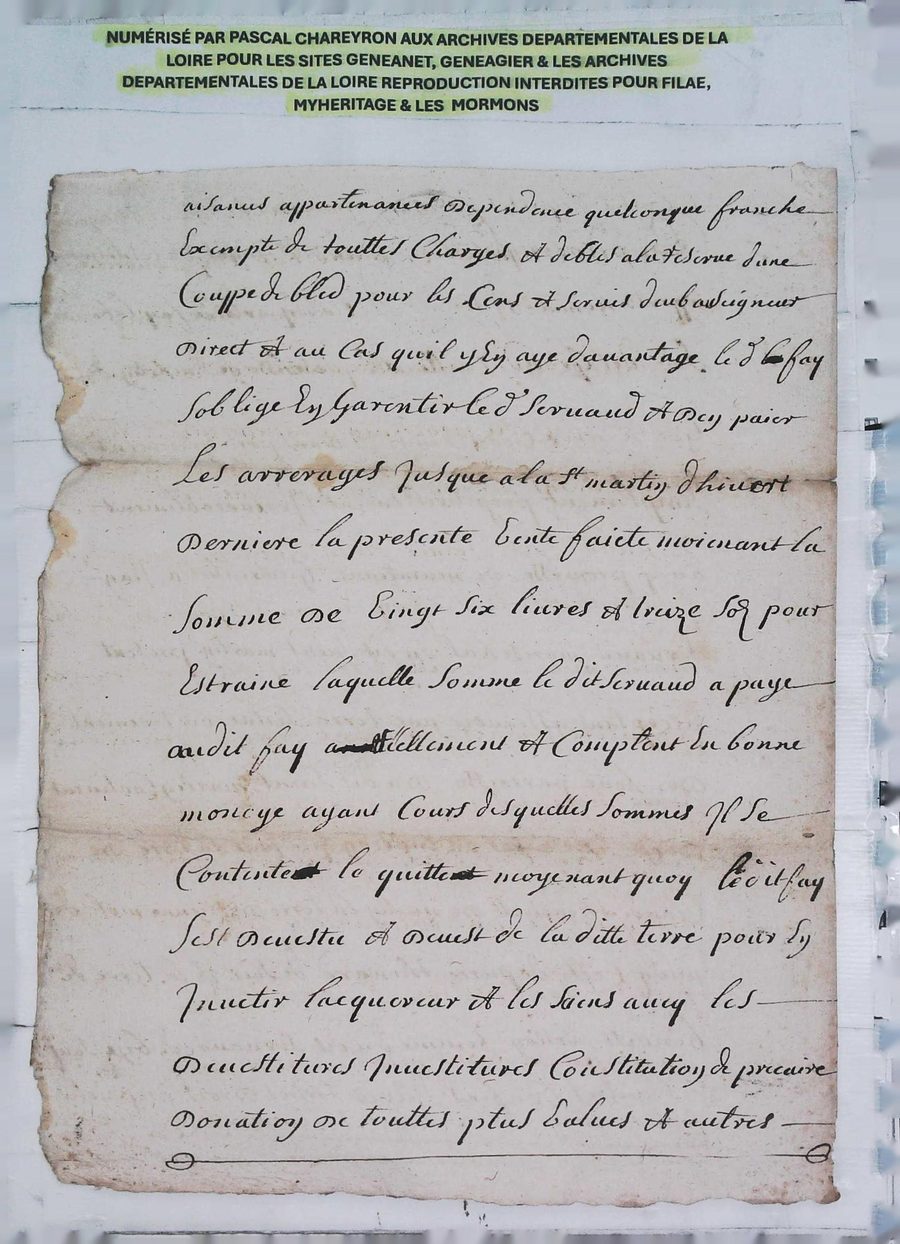 NUMÉRISÉ PAR PASCAL CHAREYRON AUX ARCHIVES DEPARTEMENTALES DE LA
LOIRE POUR LES SITES GENEANET, GENEAGIER & LES ARCHIVES
DEPARTEMENTALES DE LA LOIRE REPRODUCTION INTERDITES POUR FILAE,
MYHERITAGE & LES MORMONS
aisances appartenances Dependence quelconque franche
Exempte de touttes Charges et debtes a la reserve dune
Couppe de bled pour les Cens et servis deub au seigneur
Direct et au Cas quil y En aye davantage le d fay
Soblige En Garentir le d Servaud et Den paier
Les arrerages Jusque a la St martin dhivert
Derniere la presente Vente faicte moienant la
Somme De Vingt six livres et treize Solz pour
Estraine laquelle Somme le dit Servaud a paye
audit fay et Comptent En bonne
monoye ayant Cours desquelles Sommes Il Se
Contente le quitte moyenant quoy le dit fay
Sest Devestu et Devest de la ditte terre pour En
Investir lacquereur et les Siens avecq les
Devestitures Investitures Constitution de precaire
Donation De touttes plus Values et autres